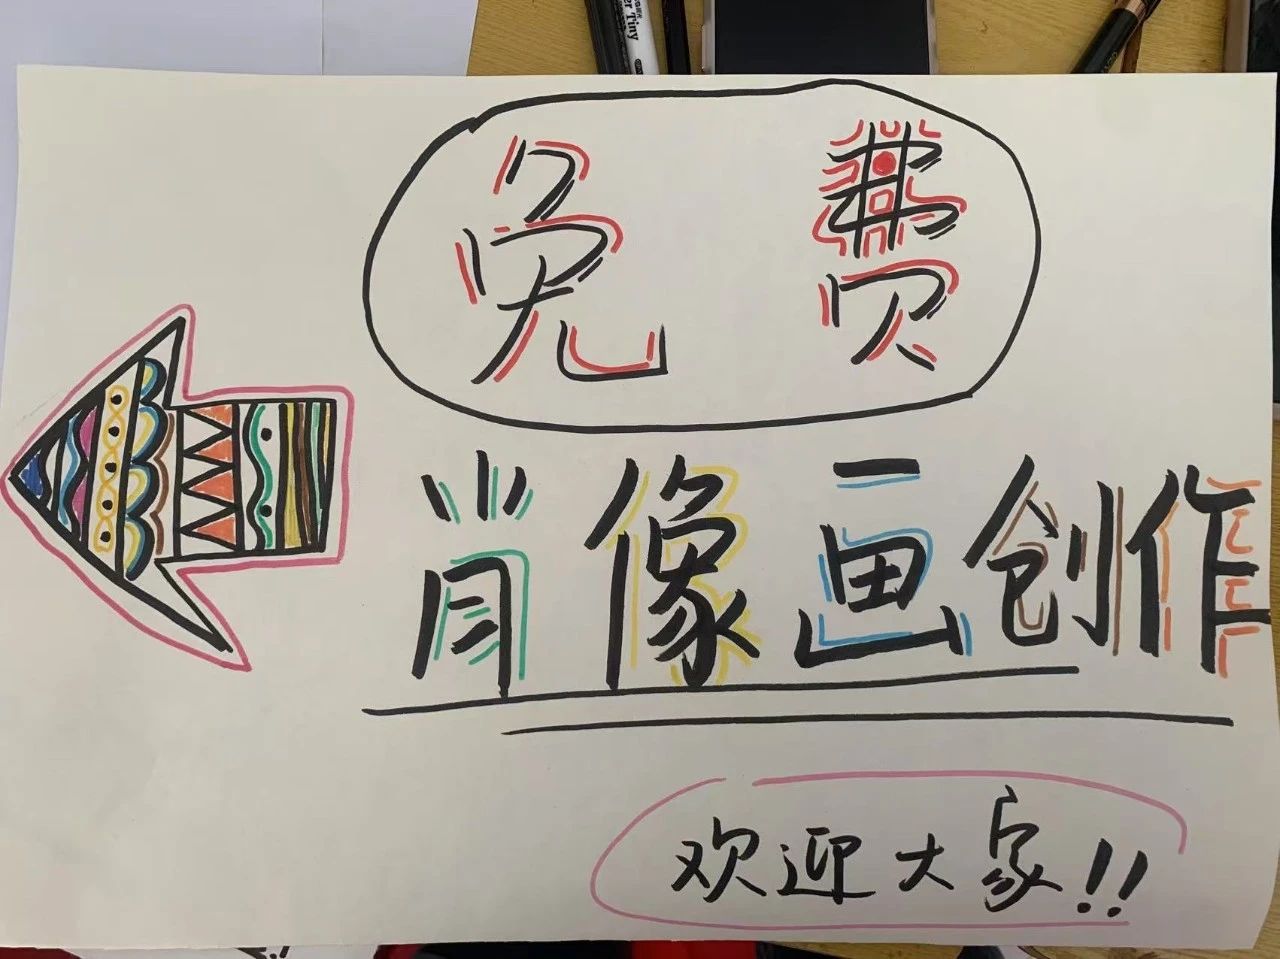 er Tiny
免费
肖像画创作
欢迎大家!!